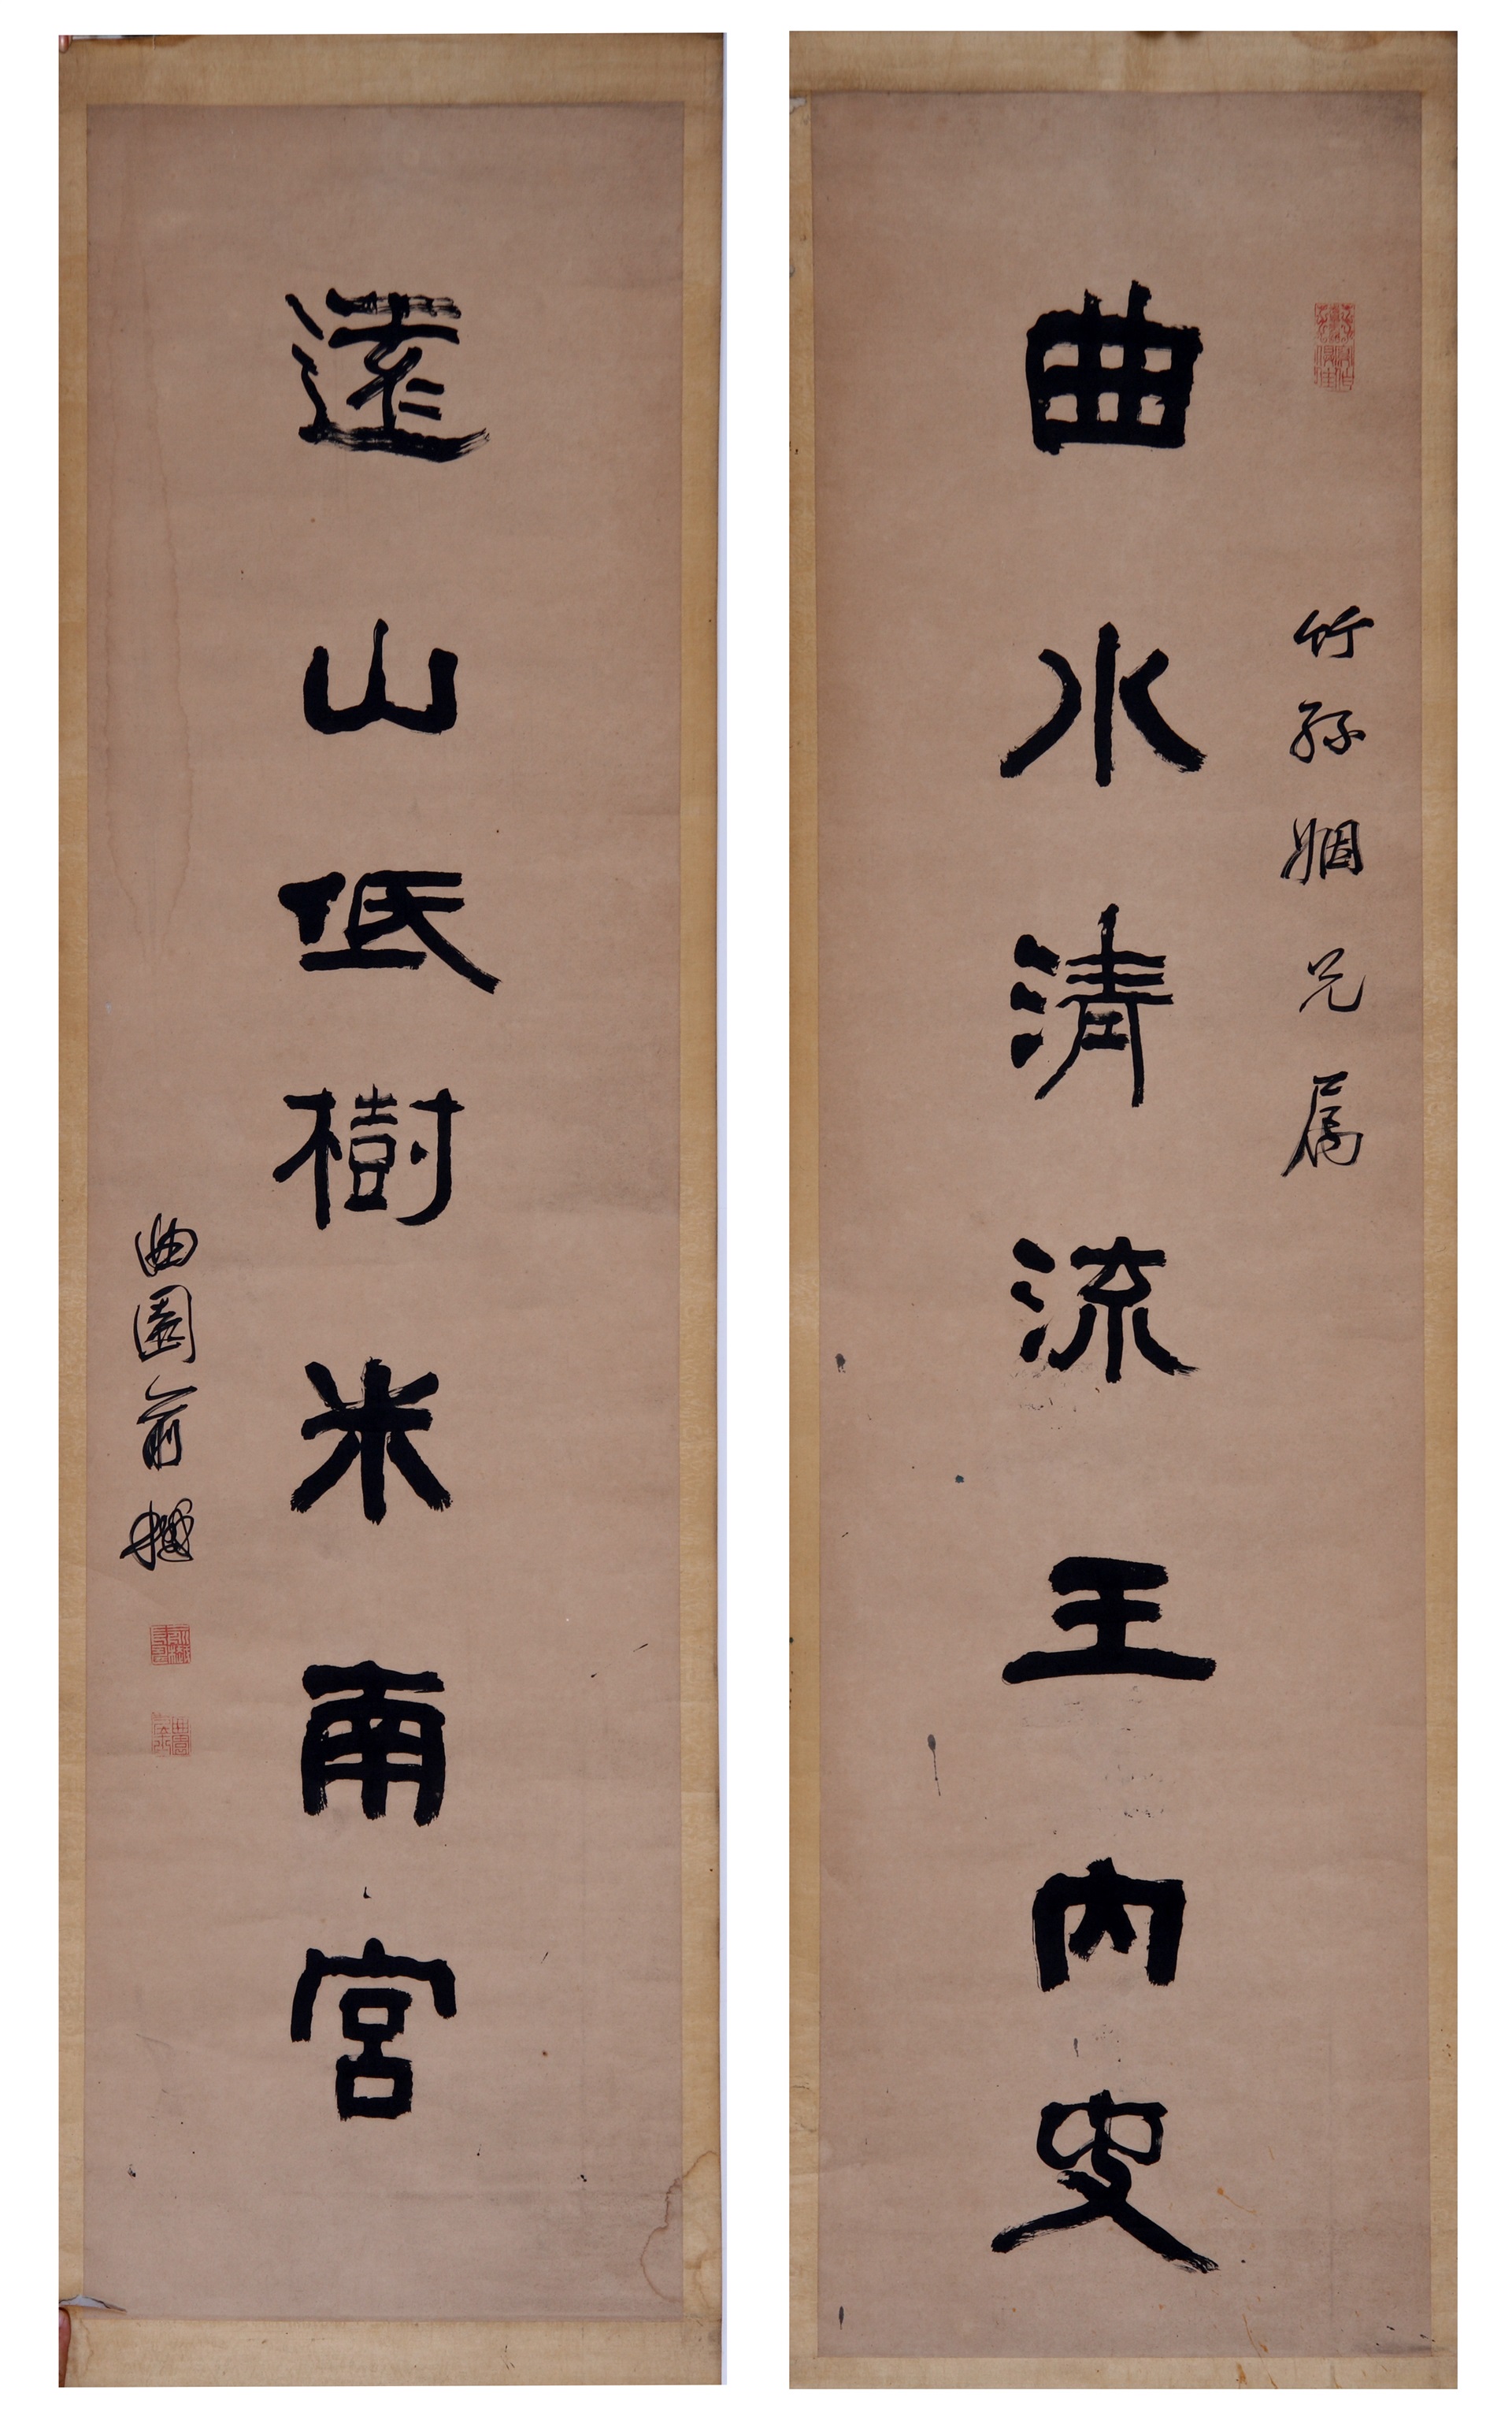 竹孫姻兄属
曲水清流王内史
遠山低樹米南宮
曲園俞樾